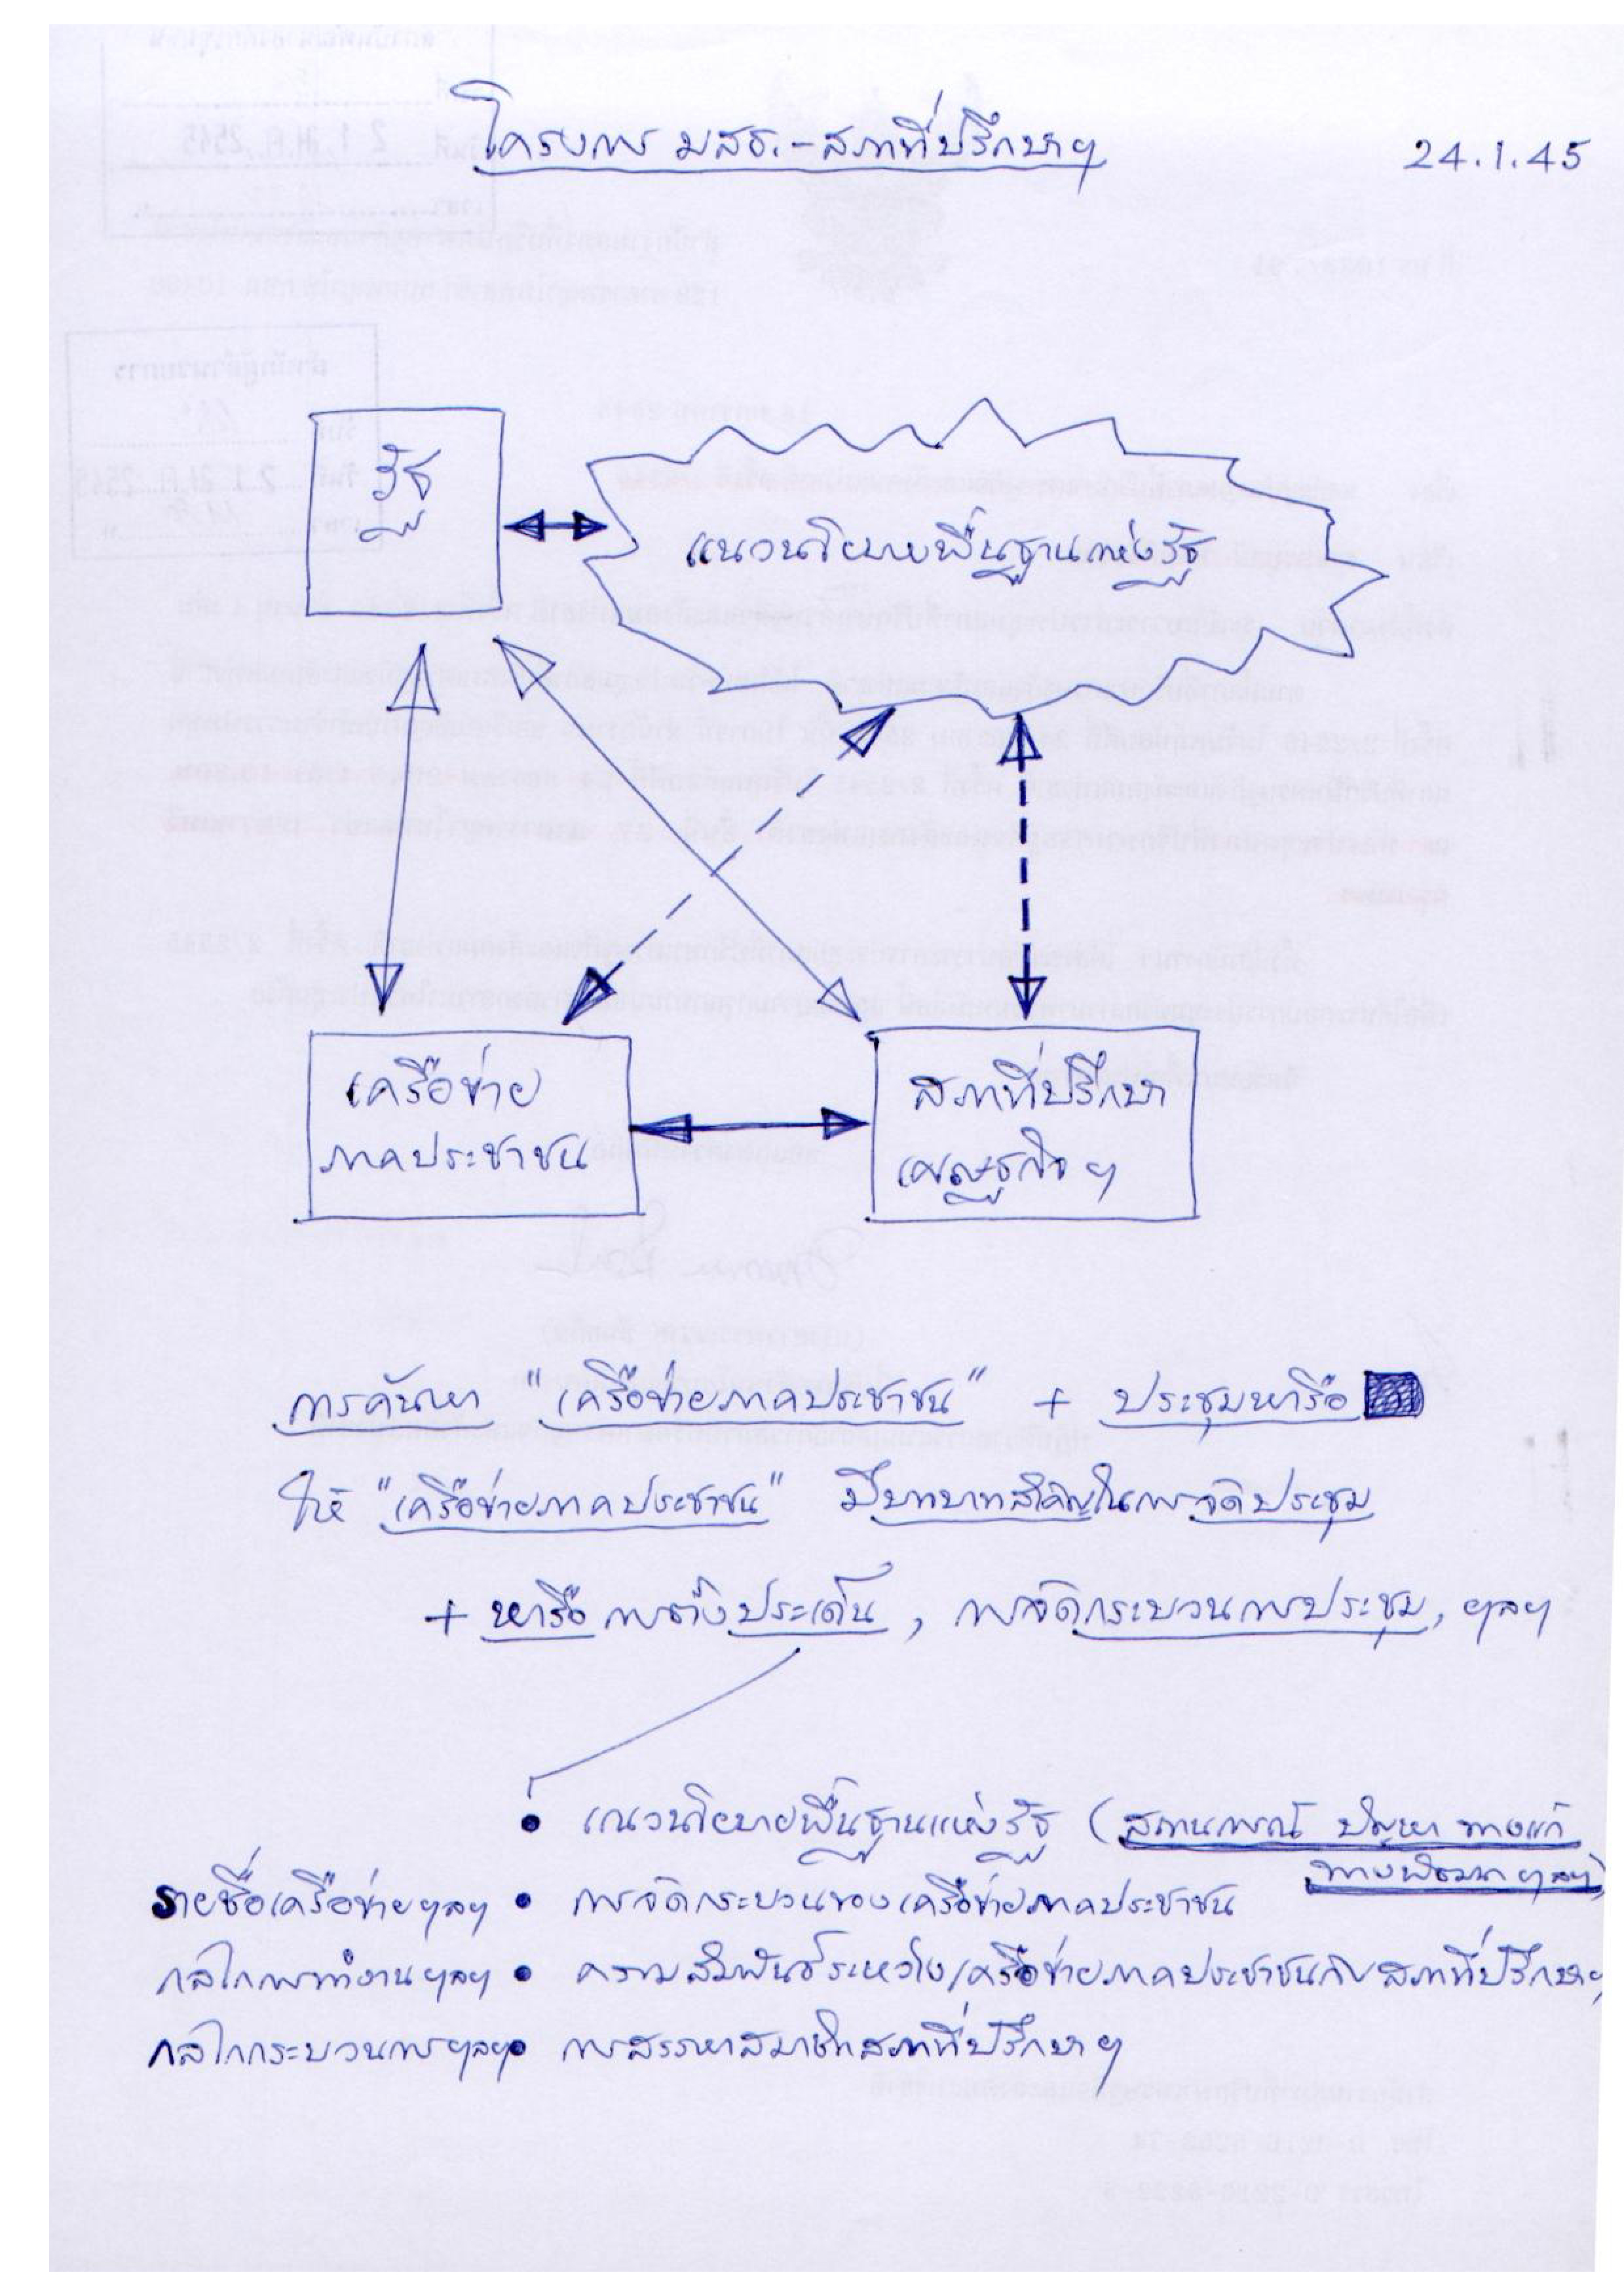 โครงการ มสธ.-สภาที่ปรึกษาฯ
24.1.45
รัฐ
แนวนโยบายพื้นฐานแห่งรัฐ
เครือข่าย
ภาคประชาชน
สภาที่ปรึกษา
เศรษฐกิจฯ
การค้นหา "เครือข่ายภาคประชาชน" + ประชุมหารือ
ให้ "เครือข่ายภาคประชาชน" มีบทบาทสำคัญในการจัดประชุม
+ หารือ การตั้งประเด็น, การจัดกระบวนการประชุม, ฯลฯ
• แนวนโยบายพื้นฐานแห่งรัฐ (สถานการณ์ ปัญหา ทางแก้
ทางพัฒนา ฯลฯ)
รายชื่อเครือข่ายฯลฯ • การจัดกระบวนของเครือข่ายภาคประชาชน
กลไกการทำงานฯลฯ • ความสัมพันธ์ระหว่างเครือข่ายภาคประชาชนกับสภาที่ปรึกษาฯ
กลไกกระบวนการฯลฯ • การสรรหาสมาชิกสภาที่ปรึกษาฯ